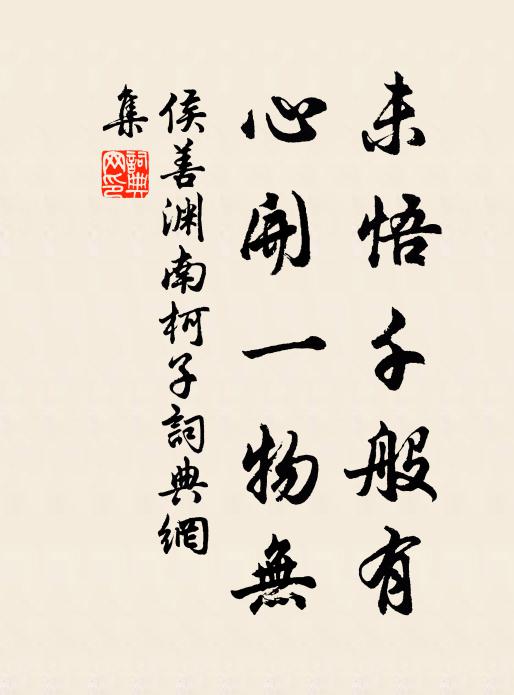 未悟千般有
心開一物無
侯善渊南柯子詞典網
集
詞典
网印